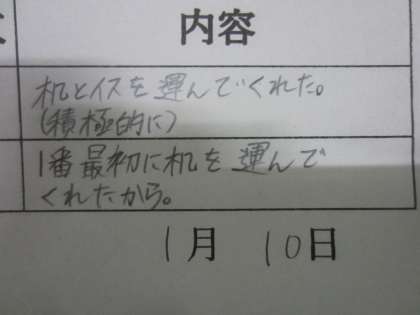 内容
机とイスを運んでくれた。
(積極的に)
1番最初に机を運んで
くれたから。
1月 10日